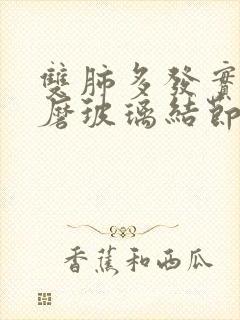 雙肺多發實
磨玻璃結節
香蕉和西瓜